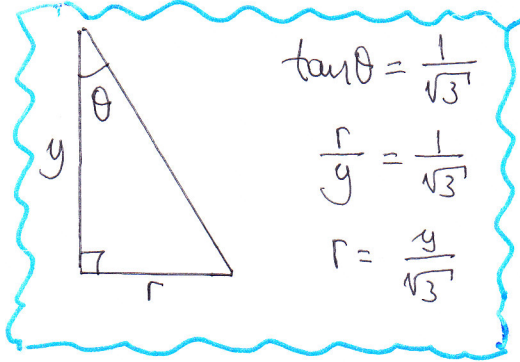 θ
y
r
tanθ = 1/√3
r/y = 1/√3
r = y/√3